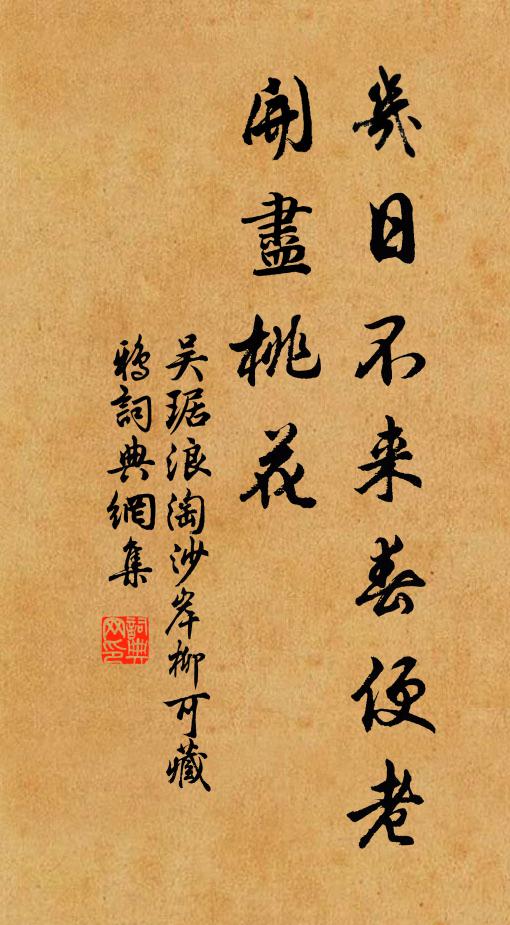 幾日不来春便老
開盡桃花
吴琚浪淘沙岸柳可藏
鴉詞典網集
詞典网印